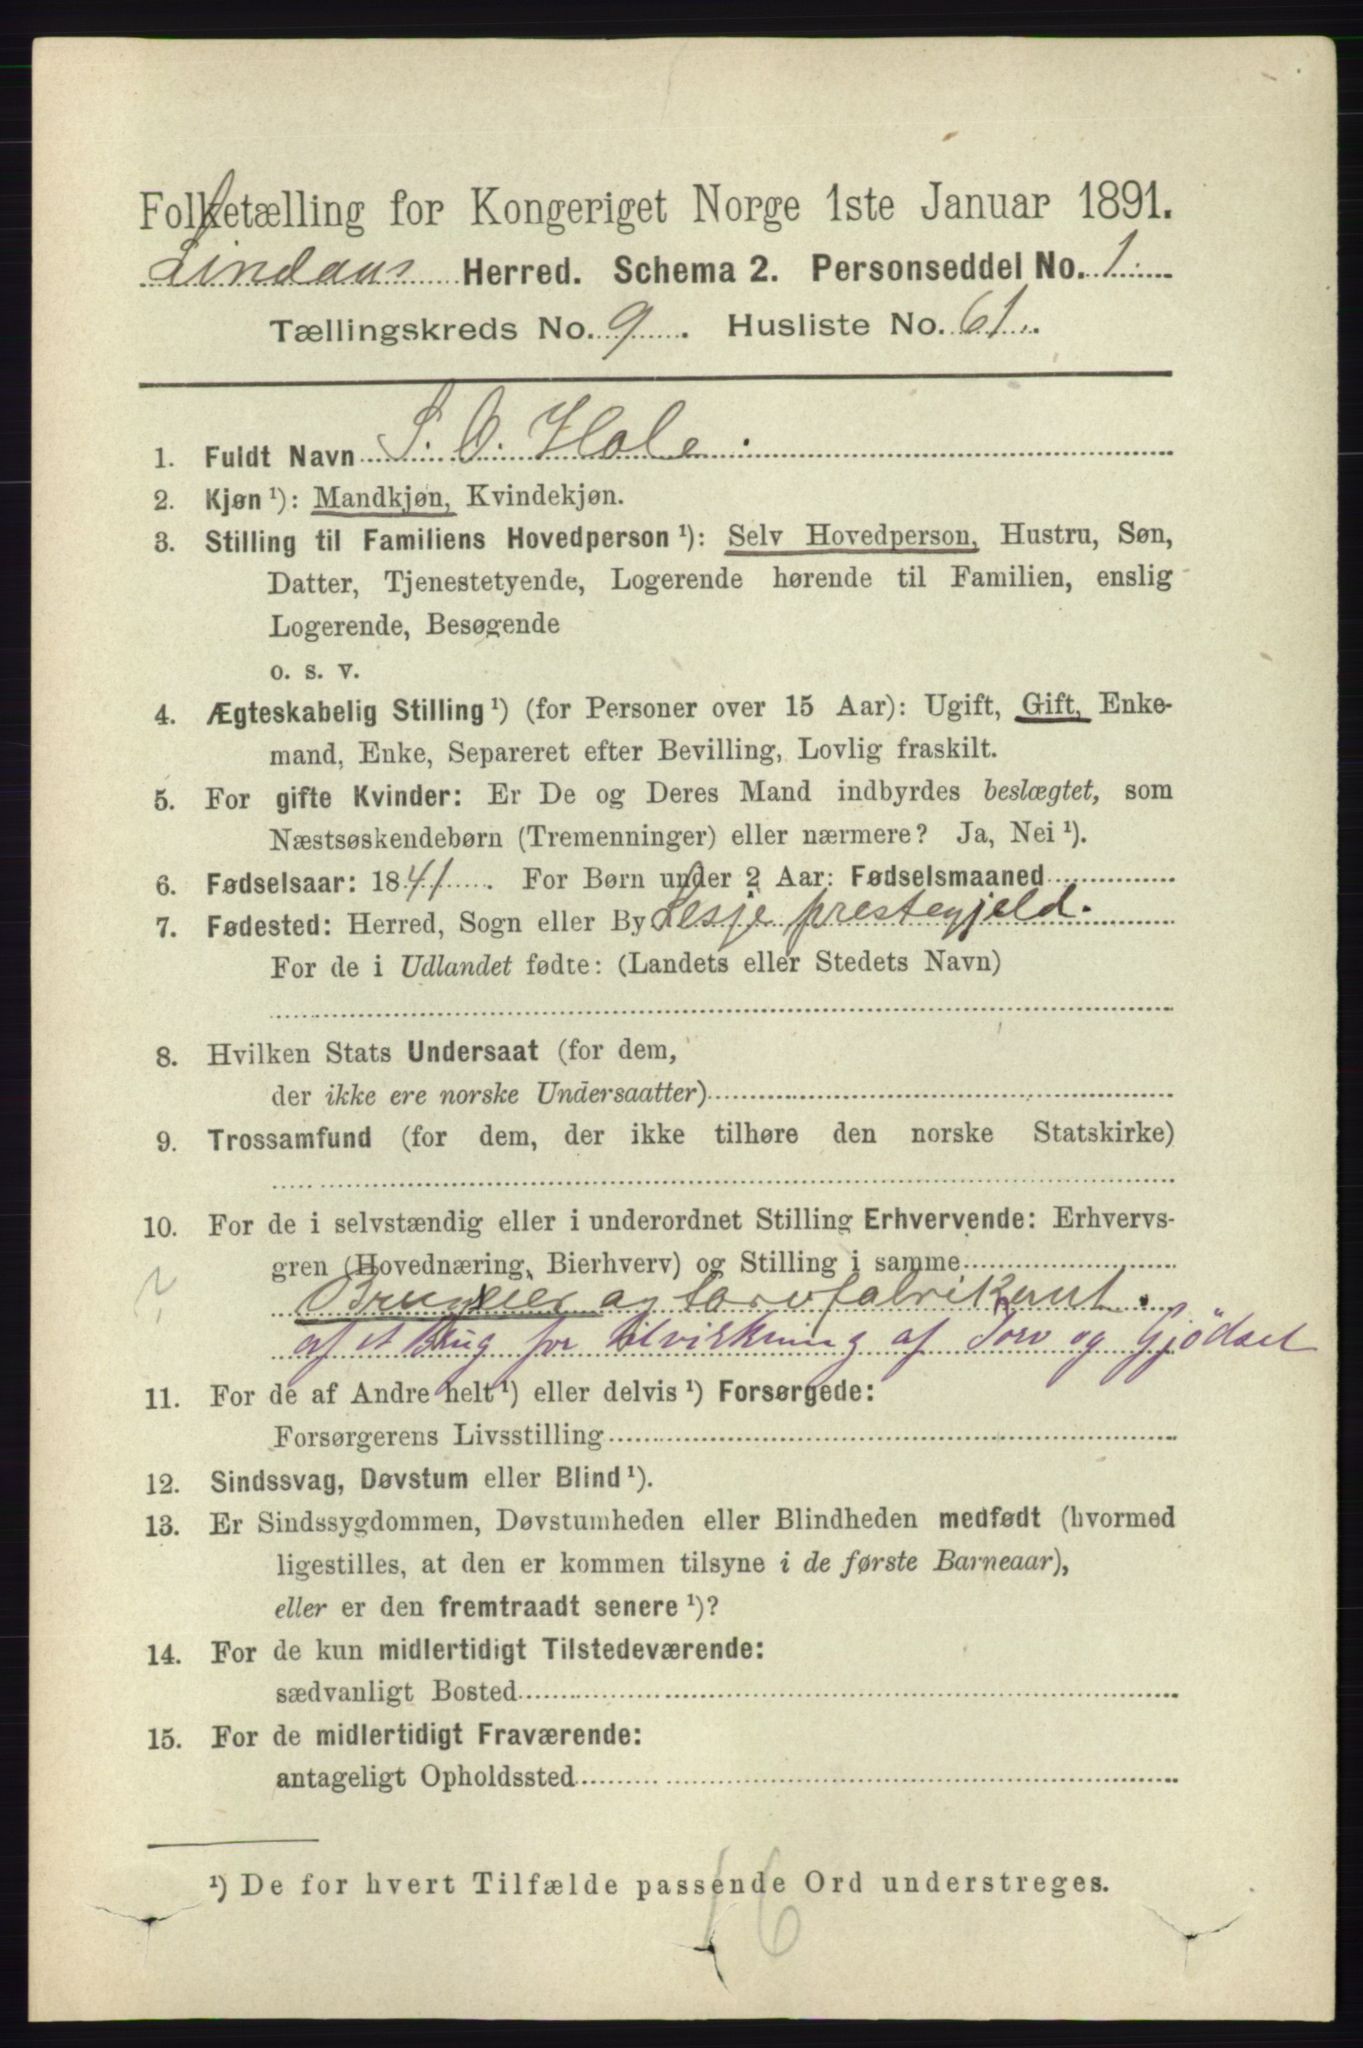 Folketælling for Kongeriget Norge 1ste Januar 1891.
Lindaas Herred. Schema 2. Personseddel No. 1
Tællingskreds No. 9. Husliste No. 61.
1. Fuldt Navn S. O. Hole.
2. Kjøn ¹): Mandkjøn, Kvindekjøn.
3. Stilling til Familiens Hovedperson ¹): Selv Hovedperson, Hustru, Søn,
Datter, Tjenestetyende, Logerende hørende til Familien, enslig
Logerende, Besøgende
o. s. v.
4. Ægteskabelig Stilling ¹) (for Personer over 15 Aar): Ugift, Gift, Enke-
mand, Enke, Separeret efter Bevilling, Lovlig fraskilt.
5. For gifte Kvinder: Er De og Deres Mand indbyrdes beslægtet, som
Næstsøskendebørn (Tremenninger) eller nærmere? Ja, Nei ¹).
6. Fødselsaar: 1841. For Børn under 2 Aar: Fødselsmaaned
7. Fødested: Herred, Sogn eller By Lesje prestegjeld.
For de i Udlandet fødte: (Landets eller Stedets Navn)
8. Hvilken Stats Undersaat (for dem,
der ikke ere norske Undersaatter)
9. Trossamfund (for dem, der ikke tilhøre den norske Statskirke)
10. For de i selvstændig eller i underordnet Stilling Erhvervende: Erhvervs-
gren (Hovednæring, Bierhverv) og Stilling i samme
?
Brugseier og torvfabrikant.
af et Brug for tilvirkning af Torv og Gjödsel
11. For de af Andre helt ¹) eller delvis ¹) Forsørgede:
Forsørgerens Livsstilling
12. Sindssvag, Døvstum eller Blind ¹).
13. Er Sindssygdommen, Døvstumheden eller Blindheden medfødt (hvormed
ligestilles, at den er kommen tilsyne i de første Barneaar),
eller er den fremtraadt senere ¹)?
14. For de kun midlertidigt Tilstedeværende:
sædvanligt Bosted
15. For de midlertidigt Fraværende:
antageligt Opholdssted
¹) De for hvert Tilfælde passende Ord understreges.
16